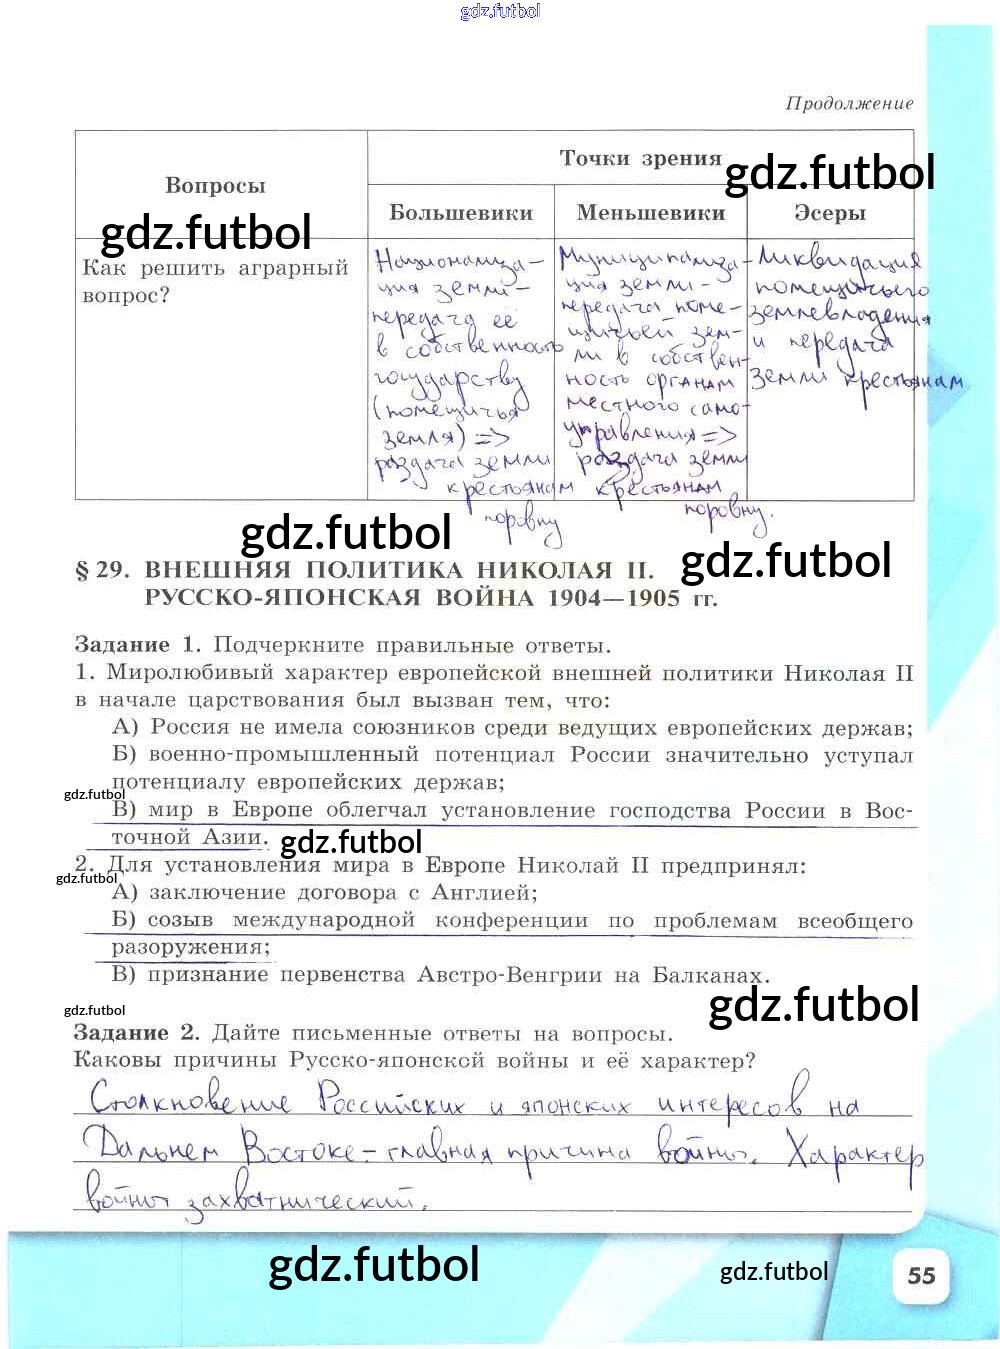 gdz.futbol
Продолжение
Вопросы
Точки зрения
gdz.futbol
Большевики
Меньшевики
Эсеры
gdz.futbol
Как решить аграрный
вопрос?
Национализа-
ция земли -
передача её
в собственность
государству
(помещичья
земля) =>
раздача земли
крестьянам
поровну
Муниципализа-
ция земли -
передача поме-
щичьей зем-
ли в собствен-
ность органам
местного само-
управления =>
раздача земли
крестьянам
поровну.
Ликвидация
помещичьего
землевладения
и передача
земли крестьянам
gdz.futbol
gdz.futbol
§ 29. ВНЕШНЯЯ ПОЛИТИКА НИКОЛАЯ II.
РУССКО-ЯПОНСКАЯ ВОЙНА 1904—1905 гг.
Задание 1. Подчеркните правильные ответы.
1. Миролюбивый характер европейской внешней политики Николая II
в начале царствования был вызван тем, что:
А) Россия не имела союзников среди ведущих европейских держав;
Б) военно-промышленный потенциал России значительно уступал
потенциалу европейских держав;
gdz.futbol
В) мир в Европе облегчал установление господства России в Вос-
точной Азии.
gdz.futbol
2. Для установления мира в Европе Николай II предпринял:
gdz.futbol
А) заключение договора с Англией;
Б) созыв международной конференции по проблемам всеобщего
разоружения;
В) признание первенства Австро-Венгрии на Балканах.
gdz.futbol
gdz.futbol
Задание 2. Дайте письменные ответы на вопросы.
Каковы причины Русско-японской войны и её характер?
Столкновение Российских и японских интересов на
Дальнем Востоке - главная причина войны. Характер
войны захватнический.
gdz.futbol
gdz.futbol
55